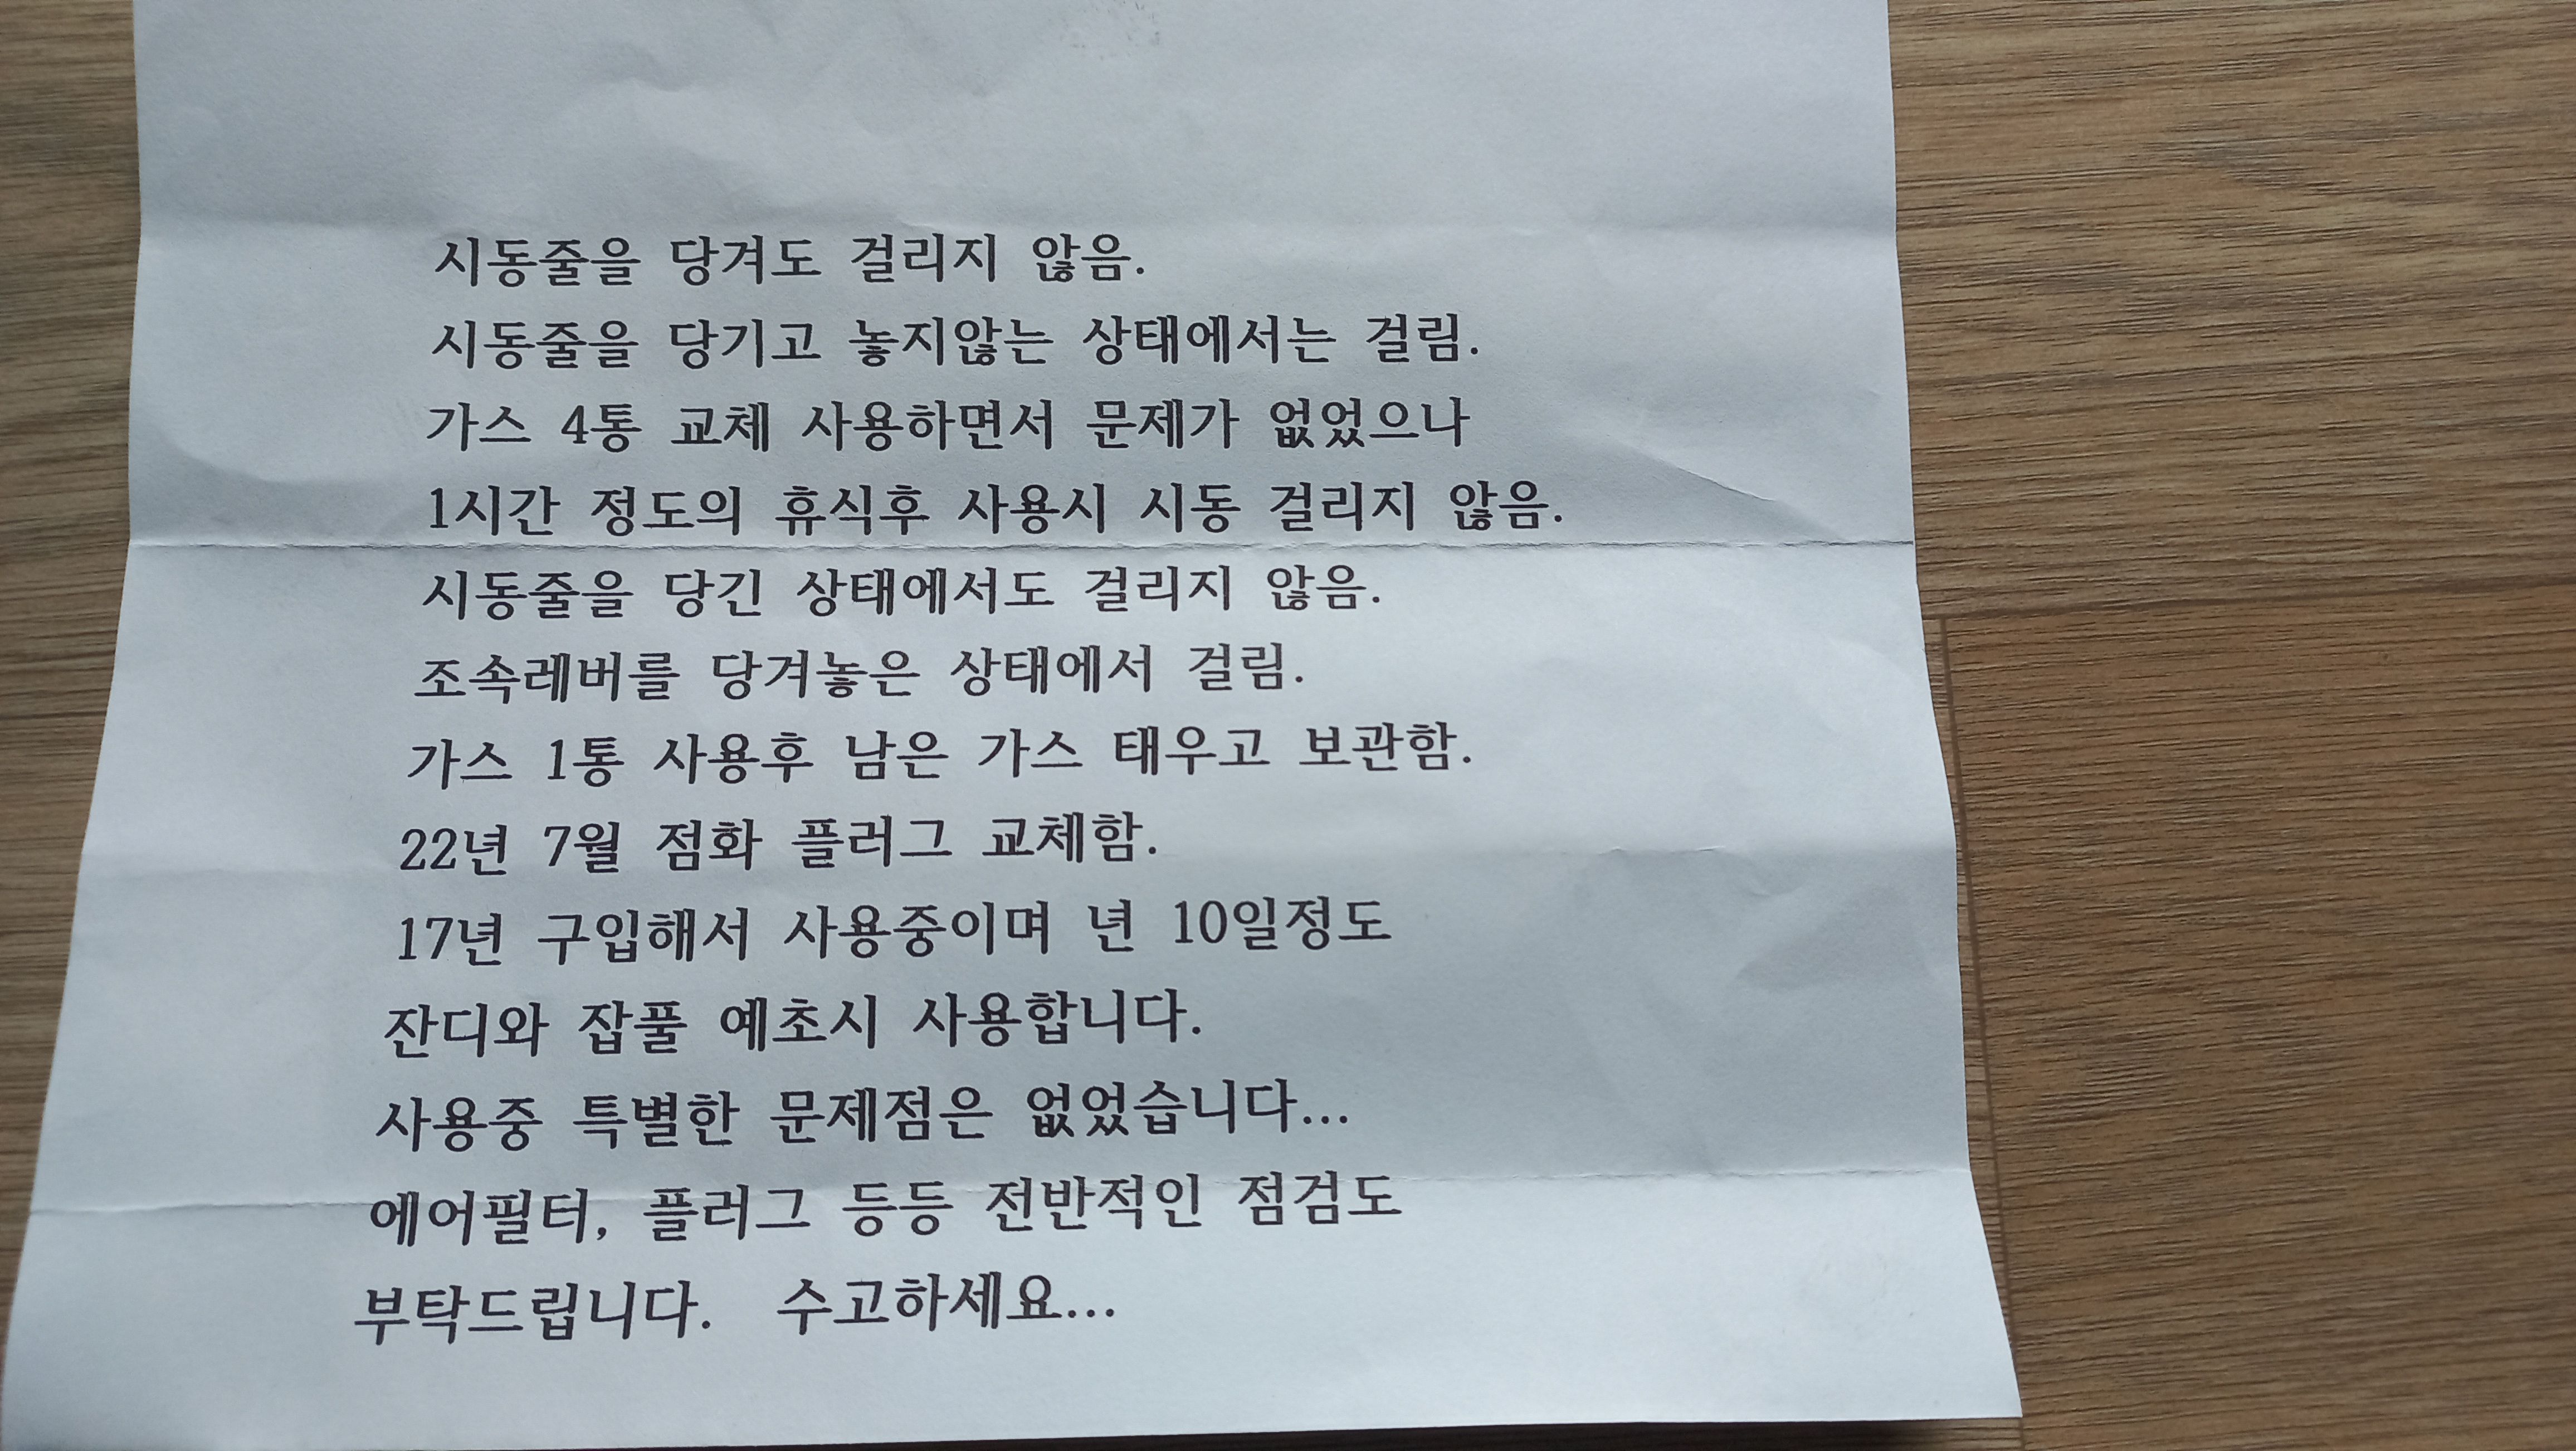 시동줄을 당겨도 걸리지 않음.
시동줄을 당기고 놓지않는 상태에서는 걸림.
가스 4통 교체 사용하면서 문제가 없었으나
1시간 정도의 휴식후 사용시 시동 걸리지 않음.
시동줄을 당긴 상태에서도 걸리지 않음.
조속레버를 당겨놓은 상태에서 걸림.
가스 1통 사용후 남은 가스 태우고 보관함.
22년 7월 점화 플러그 교체함.
17년 구입해서 사용중이며 년 10일정도
잔디와 잡풀 예초시 사용합니다.
사용중 특별한 문제점은 없었습니다...
에어필터, 플러그 등등 전반적인 점검도
부탁드립니다. 수고하세요...